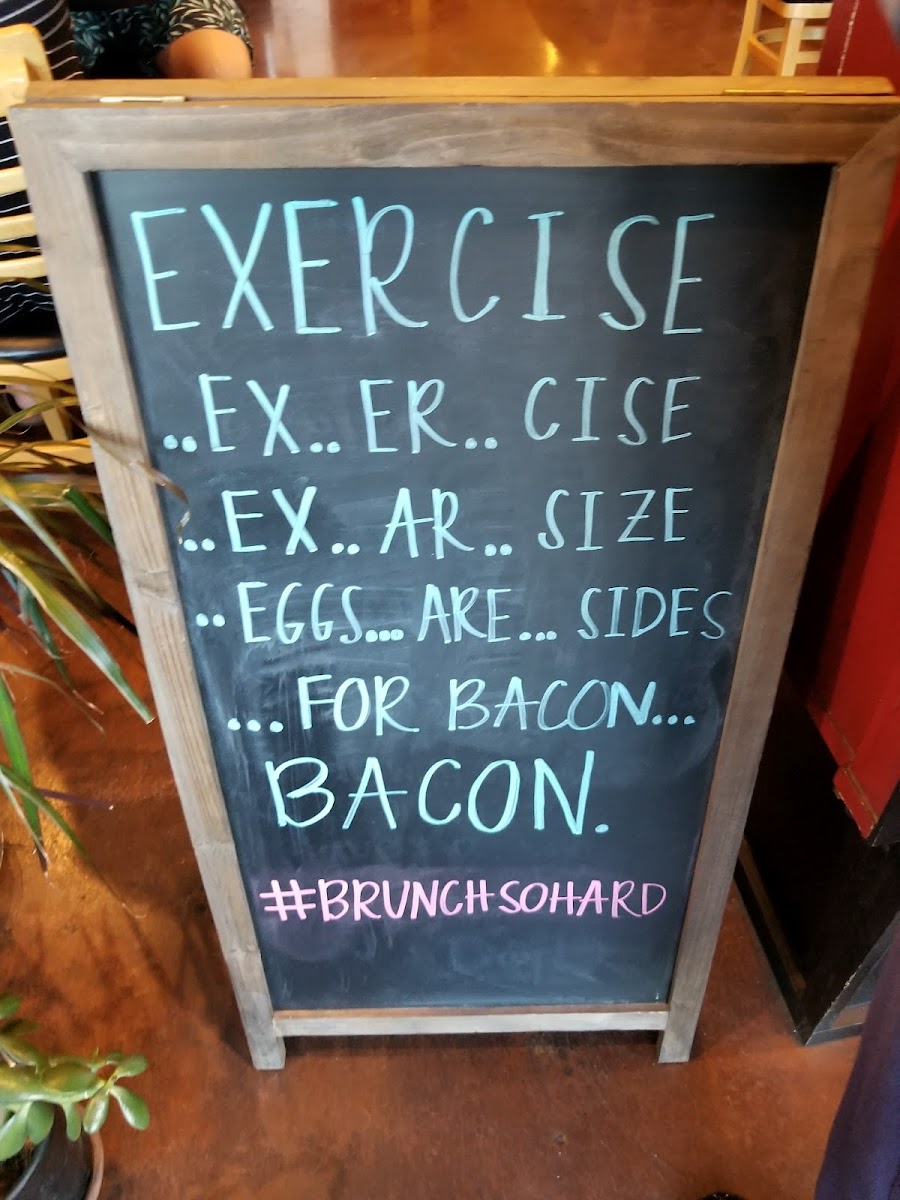 EXERCISE
..EX.. ER.. CISE
..EX.. AR.. SIZE
..EGGS... ARE... SIDES
...FOR BACON...
BACON.
#BRUNCHSOHARD